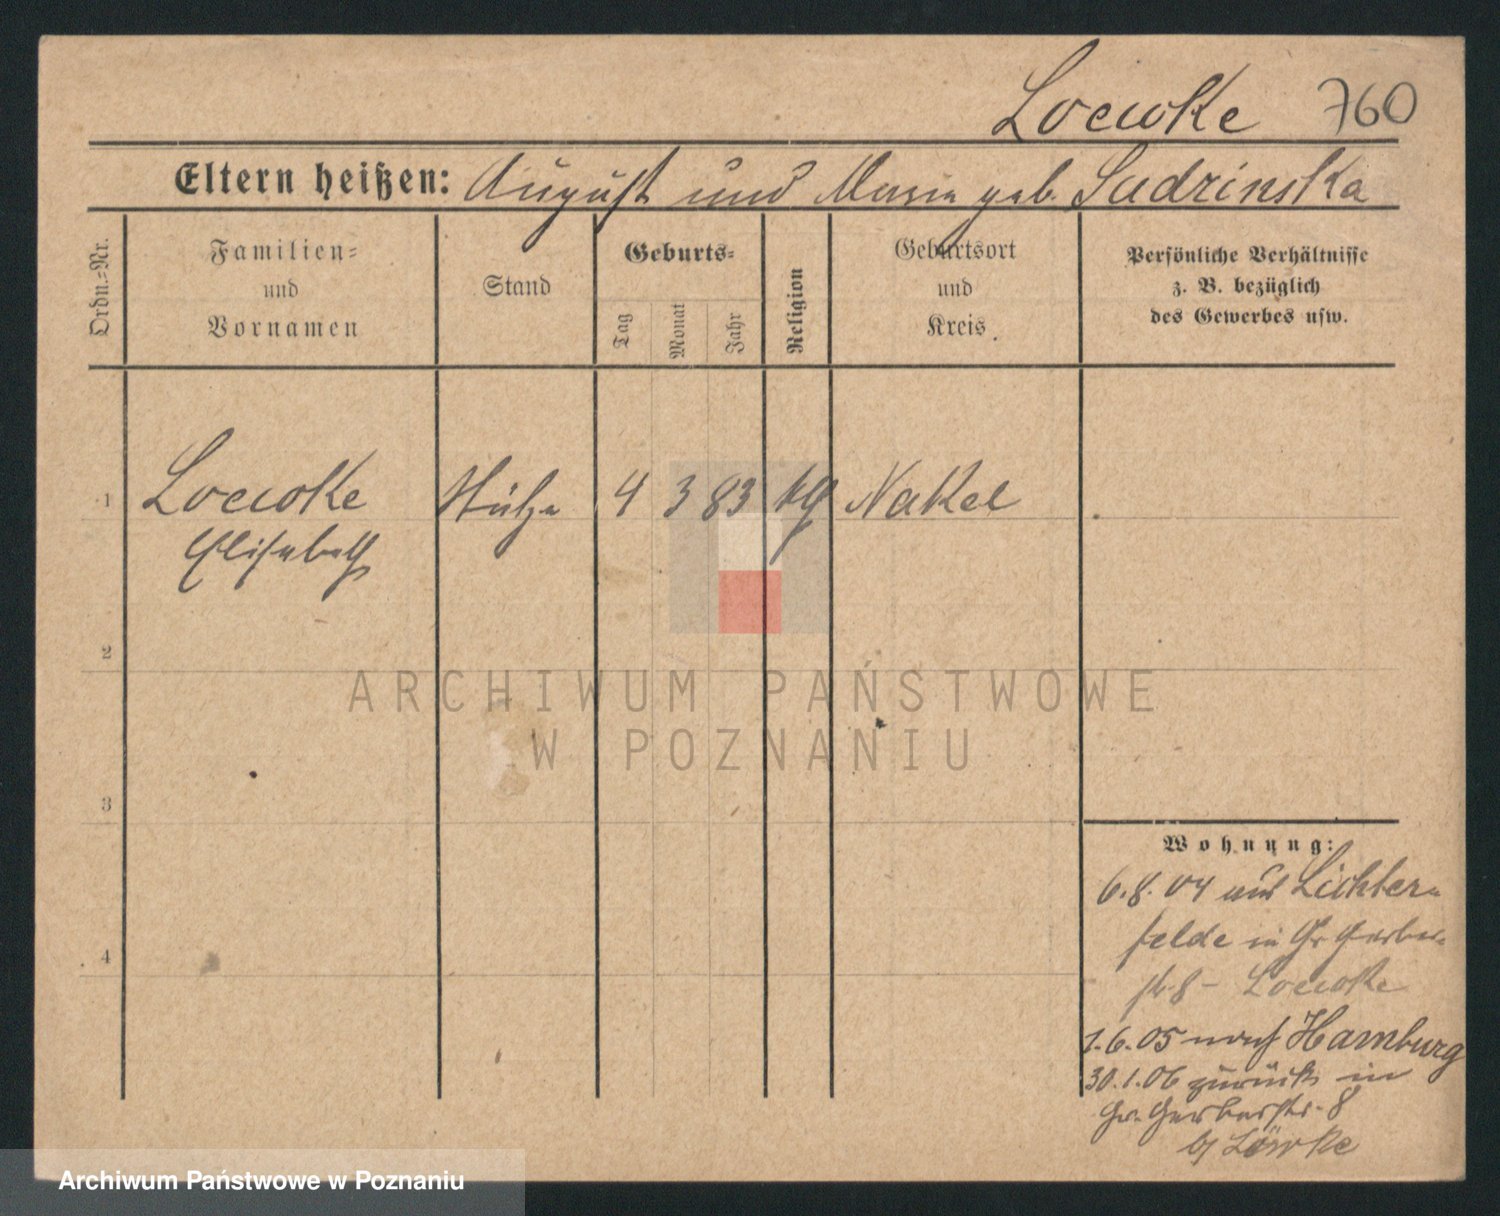 Loewke 760
Eltern heißen: August und Marie geb. Sudzinska
Ordn.=Nr.
Familien=
und
Vornamen
Stand
Geburts=
Tag
Monat
Jahr
Religion
Geburtsort
und
Kreis
Persönliche Verhältnisse
z. B. bezüglich
des Gewerbes usw.
1 Loewke Stütze 4 3 83 kth Nakel
Elisabeth
2
3
4
Wohnung:
6.8.04 aus Lichter=
felde in Gr Gerber=
str. 8 - Loewke
1.6.05 nach Hamburg
30.1.06 zurück in
Gr. Gerberstr. 8
bj Löwke
ARCHIWUM PAŃSTWOWE
W POZNANIU
Archiwum Państwowe w Poznaniu